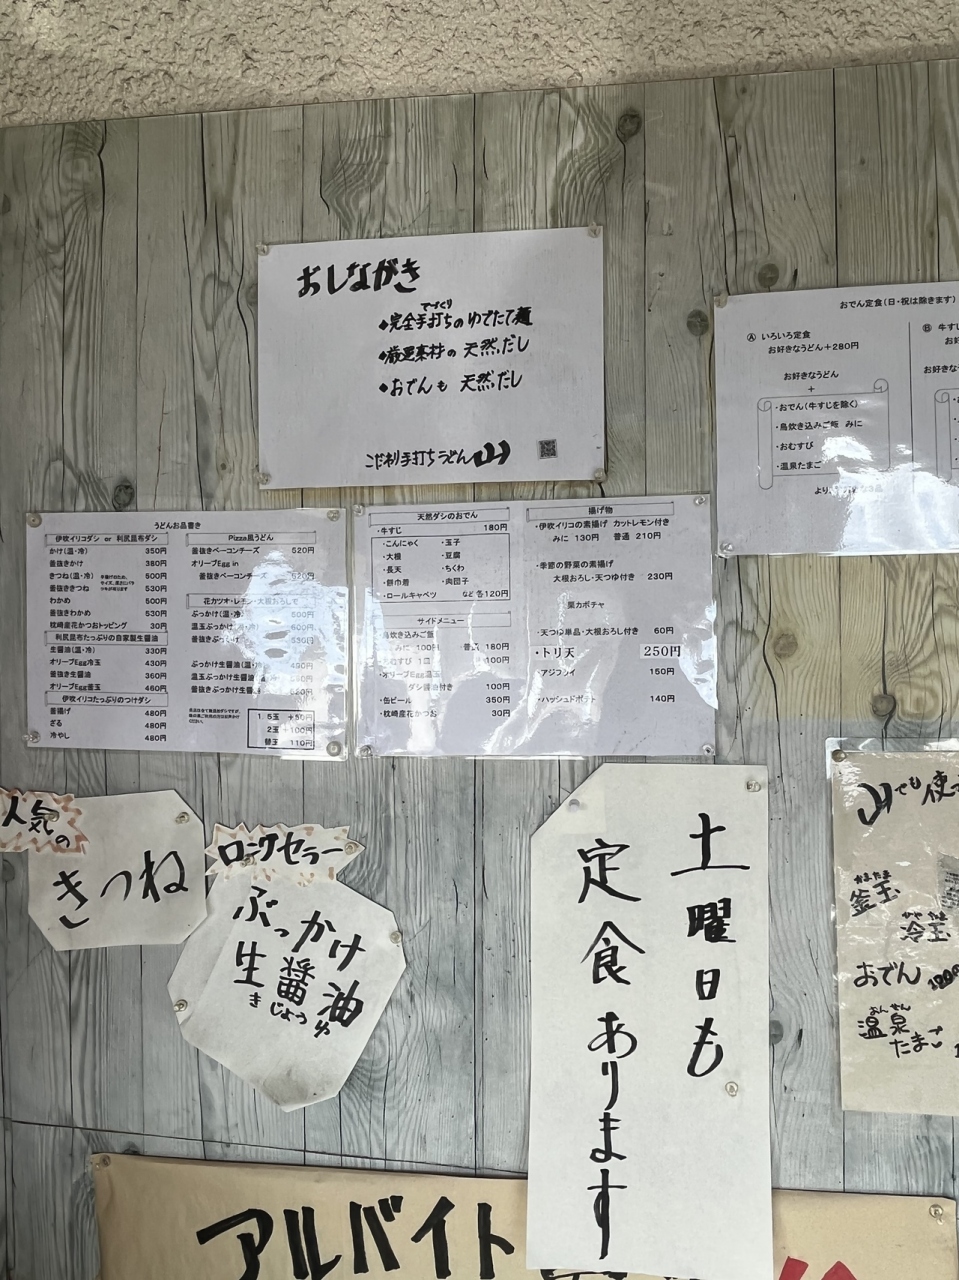 おしながき
てづくり
◆完全手打ちのゆでたて麺
◆厳選素材の 天然だし
◆おでんも 天然だし
こだわり手打ちうどん 山
おでん定食(日・祝は除きます)
Ⓐ いろいろ定食
お好きなうどん+280円
お好きなうどん
+
・おでん(牛すじを除く)
・鳥炊き込みご飯 みに
・おむすび
・温泉たまご
より
Ⓑ 牛す
うどんお品書き
伊吹イリコダシ or 利尻昆布ダシ
かけ(温・冷) 350円
釜抜きかけ 380円
きつね(温・冷) 500円
釜抜ききつね 530円
わかめ 500円
釜抜きわかめ 530円
枕崎産花かつおトッピング 30円
利尻昆布たっぷりの自家製生醤油
生醤油(温・冷) 330円
オリーブEgg冷玉 430円
釜抜き生醤油 360円
オリーブEgg釜玉 460円
伊吹イリコたっぷりのつけダシ
釜揚げ 480円
ざる 480円
冷やし 480円
Pizza風うどん
釜抜きベーコンチーズ 520円
オリーブEgg in
釜抜きベーコンチーズ
花カツオ・レモン・大根おろしで
ぶっかけ(温・冷)
温玉ぶっかけ
釜抜きぶっかけ
ぶっかけ生醤油
温玉ぶっかけ生醤油
釜抜きぶっかけ生醤油
1.5玉 +50円
2玉 +100円
替玉 110円
天然ダシのおでん
・牛すじ 180円
・こんにゃく ・玉子
・大根 ・豆腐
・長天 ・ちくわ
・餅巾着 ・肉団子
・ロールキャベツ など 各120円
サイドメニュー
鳥炊き込みご飯
みに 100円 普通 180円
おむすび 1コ 100円
・オリーブEgg温玉
ダシ醤油付き 100円
・缶ビール 350円
・枕崎産花かつお 30円
揚げ物
・伊吹イリコの素揚げ カットレモン付き
みに 130円 普通 210円
・季節の野菜の素揚げ
大根おろし・天つゆ付き 230円
栗カボチャ
・天つゆ単品・大根おろし付き 60円
・トリ天 250円
・アジフライ 150円
・ハッシュドポテト 140円
人気の
きつね
ロングセラー
ぶっかけ
生醤油
き じょうゆ
土曜日も
定食あります
山でも使
かまたま
釜玉
ひや たま
冷玉
おでん
おんせん
温泉
たまご
アルバイト